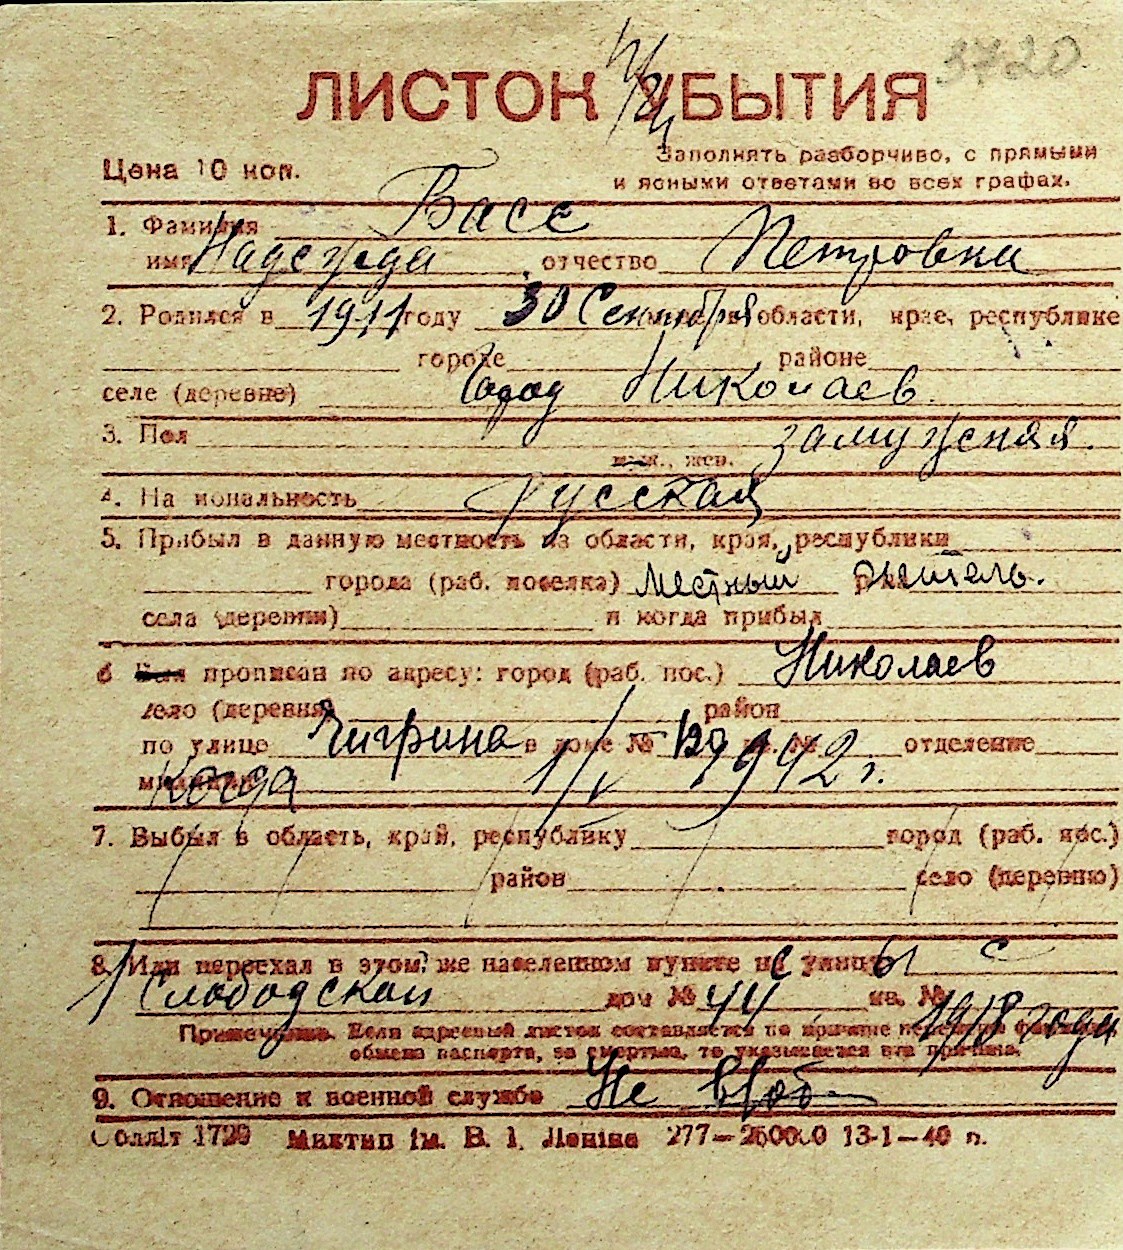 3720
ЛИСТОК УБЫТИЯ
Цена 10 коп.
Заполнять разборчиво, с прямыми
и ясными ответами во всех графах.
1. Фамилия Басс
имя Надежда отчество Петровна
2. Родился в 1911 году 30 Сентября области, крае, республике
городе районе
селе (деревне) Город Николаев.
3. Пол замужняя.
муж., жен.
4. Национальность русская
5. Прибыл в данную местность из области, края, республики
города (раб. поселка) местный житель.
села (деревни) и когда прибыл
6 Был прописан по адресу: город (раб. пос.) Николаев
село (деревня) район
по улице Чигрина в доме № 129 кв. № отделение
милиции Когда 1/V 1942 г.
7. Выбыл в область, край, республику город (раб. пос.)
район село (деревню)
8. Или переехал в этом же населенном пункте с улицы с
Слободской дом № 44 кв. № 1918 года
Примечание. Если адресный листок составляется по причине перемены фамилии,
обмена паспорта, за смертью, то указывается эта причина.
9. Отношение к военной службе Не в/об
Облліт 1729 Миктип ім. В. І. Леніна 277—250000 13-1—40 п.